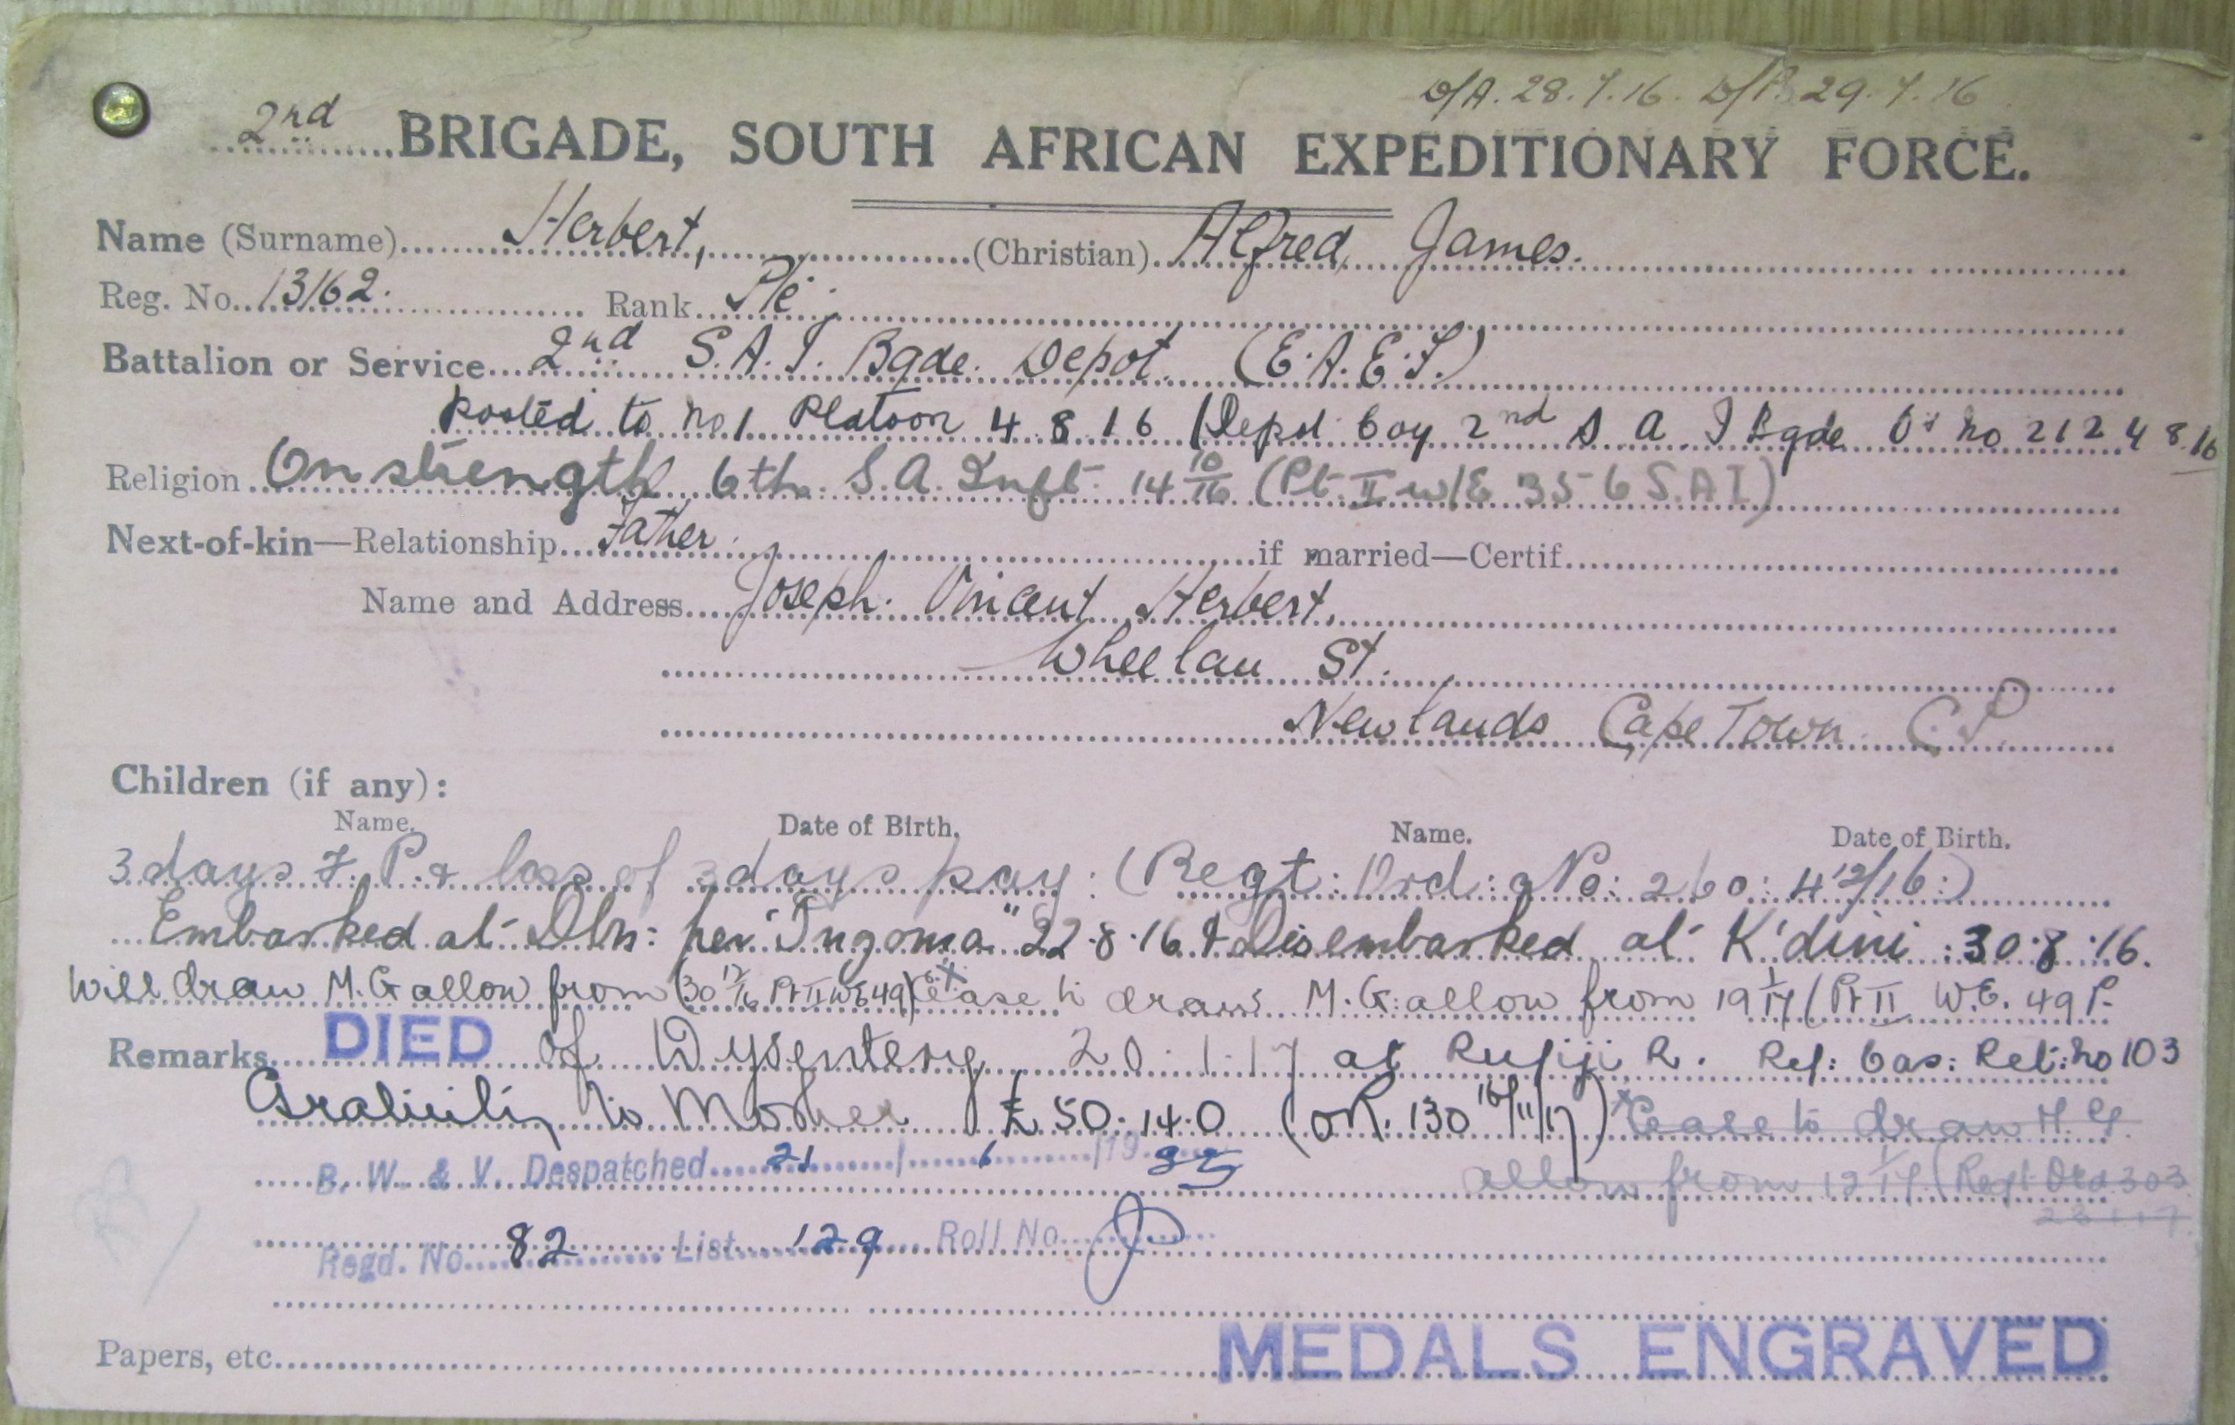 D/A. 28.7.16. D/P. 29.7.16
2nd BRIGADE, SOUTH AFRICAN EXPEDITIONARY FORCE.
Name (Surname) Herbert, (Christian) Alfred James.
Reg. No. 13162. Rank Pte.
Battalion or Service 2nd S.A.I. Bgde. Depot. (E.A.E.F.)
Posted to No 1 Platoon 4 8 16 (Depot Coy 2nd S A I Bgde O' No 212 4 8.16
Religion On strength 6th S.A. Inft 14 10/16 (Pt. II W/E 35 6 S.A.I)
Next-of-kin—Relationship Father. if married—Certif.
Name and Address Joseph. Vincent Herbert,
Wheelan St.
Newlands Cape Town C.P.
Children (if any):
Name. Date of Birth. Name. Date of Birth.
3 days F. P. & loss of 3 days pay: (Regt: Ord: No: 260: 4 12/16:)
Embarked at Dbn: per "Ingoma" 22.8.16 & Disembarked at K'dini: 30.8.16.
Will draw M.G allow from (30 12/16 Pt II WE 49) Cease to draw M.G: allow from 19 1/17 (Pt II W.E. 49 P.
Remarks DIED of Dysentery 20.1.17 at Rufiji R. Ref: Cas: Ret: No 103
Gratuity to Mother £50.14.0 (OR. 130 16/11/17) Cease to draw M.G.
allow from 12 1/17 (Regt Ord 303
B. W. & V. Despatched 21 / 6 /19 35
Regd. No 82 List 129 Roll No
Papers, etc. MEDALS ENGRAVED